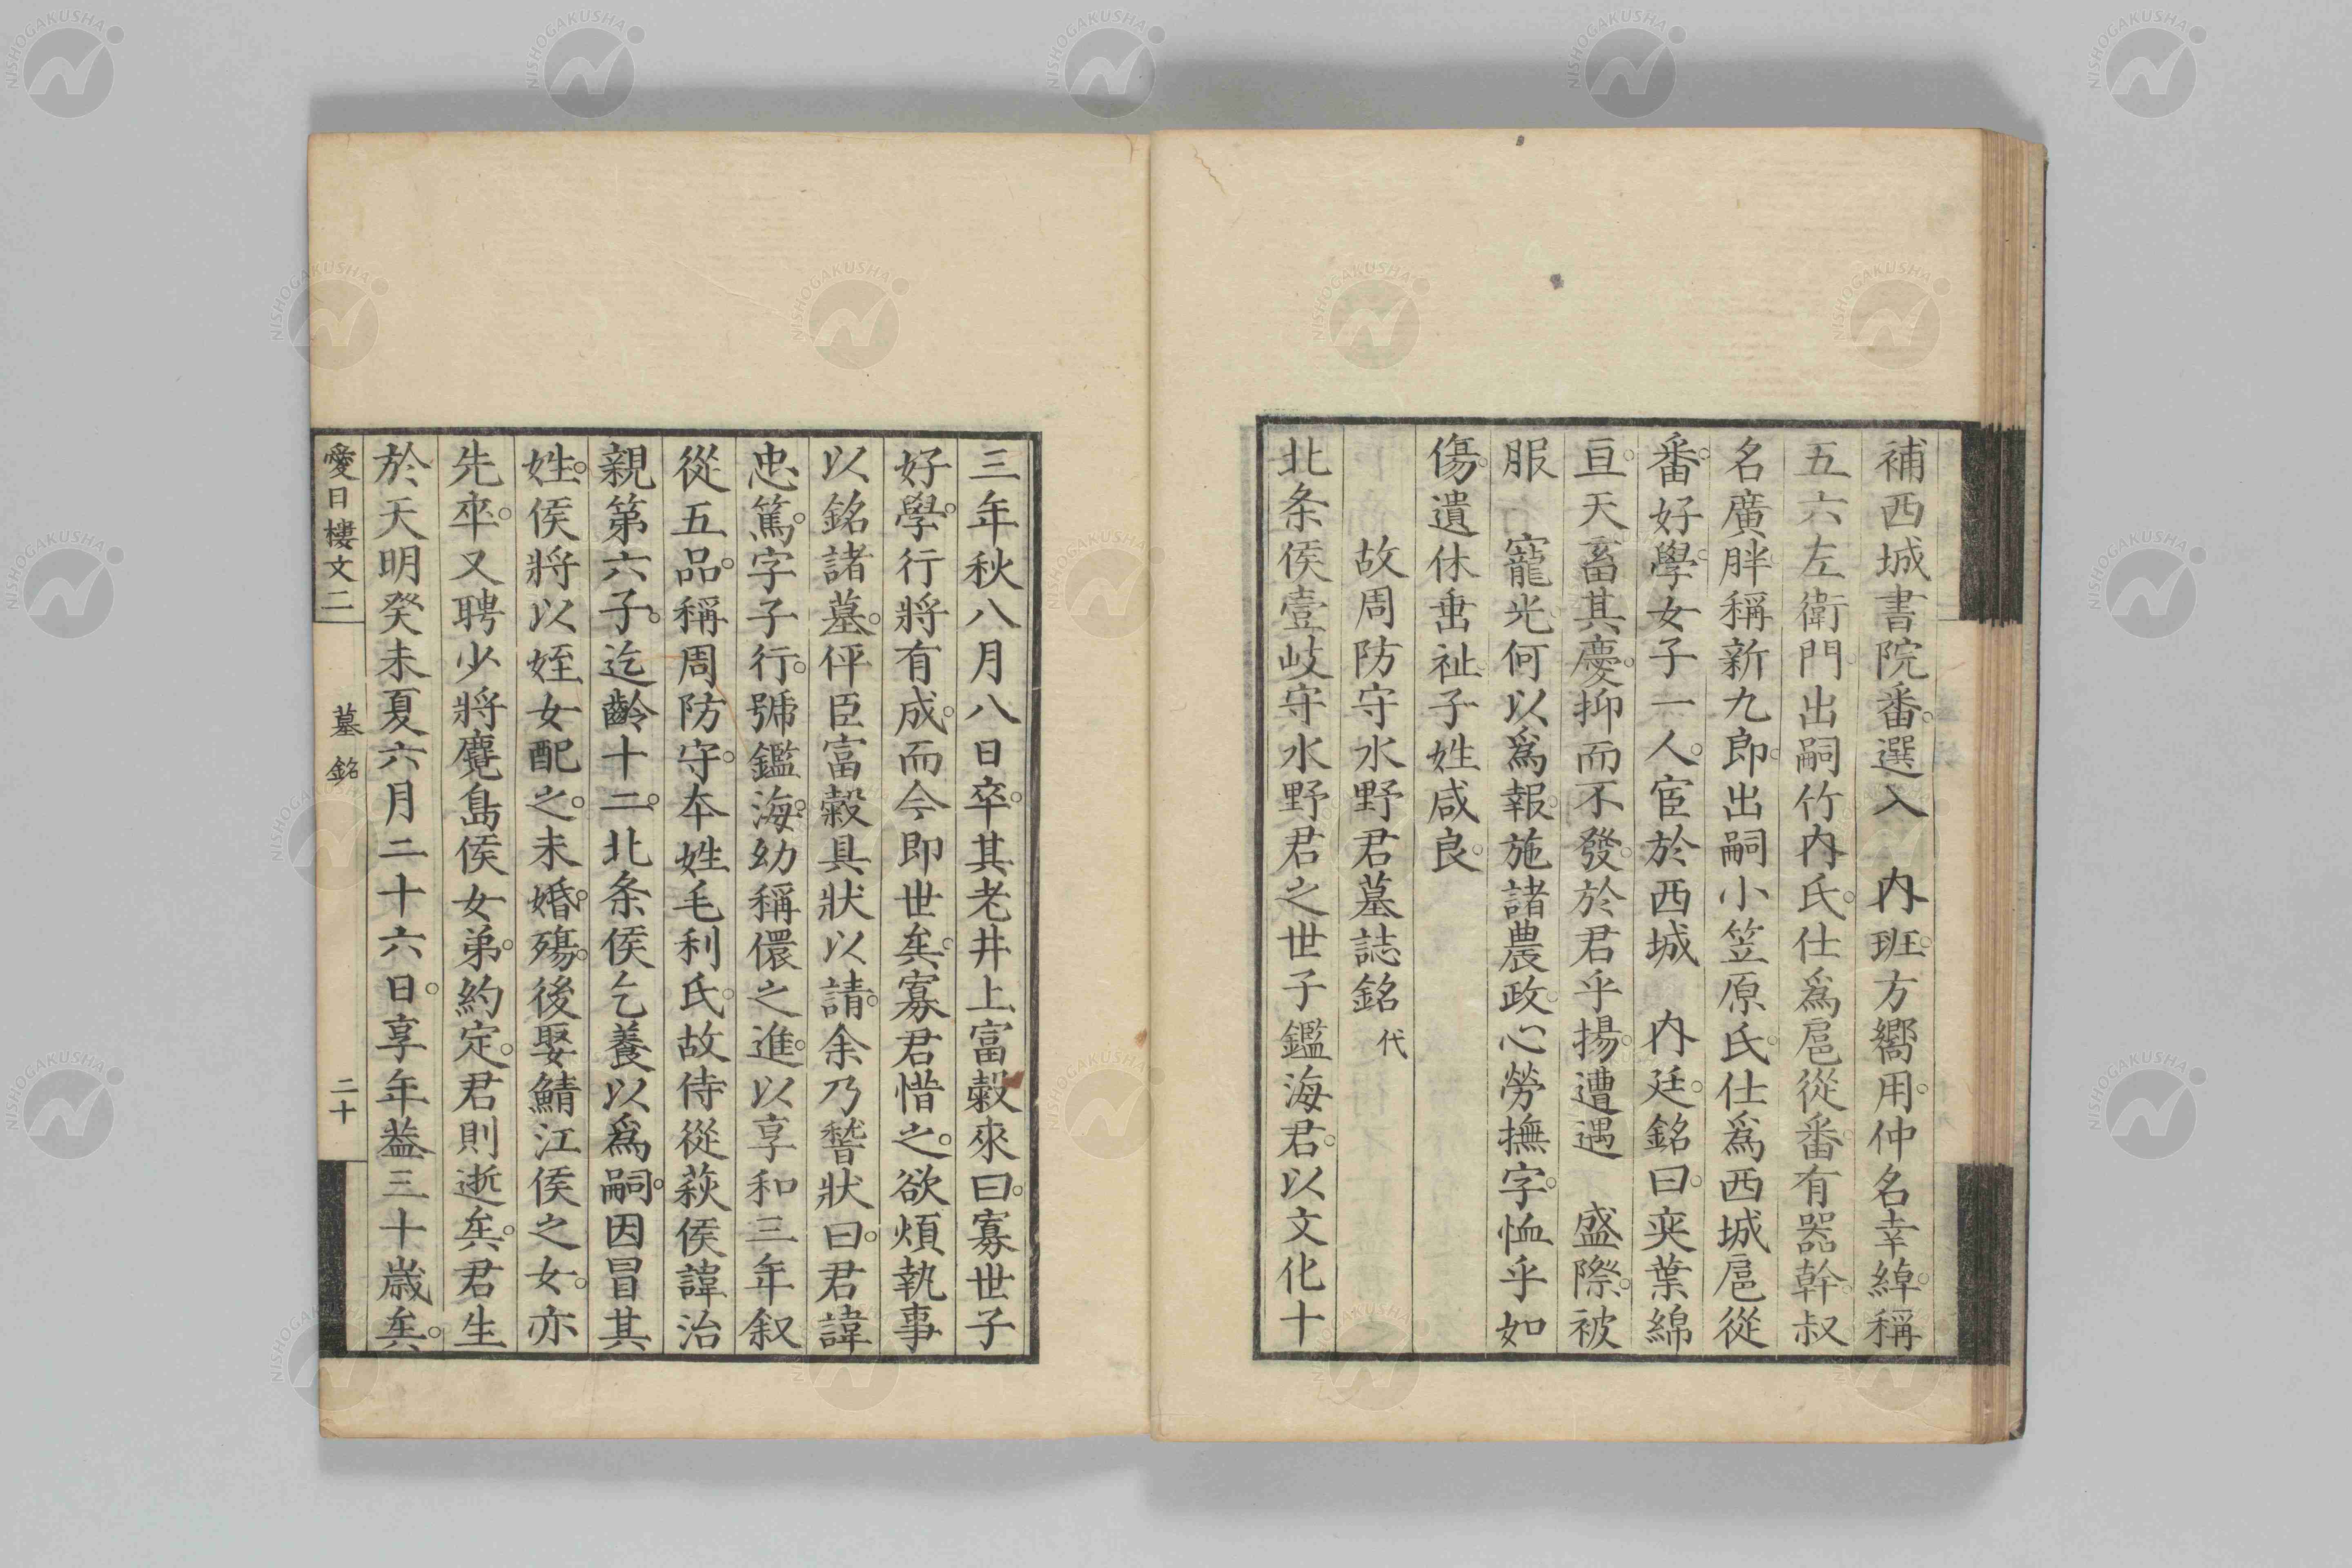 補西城書院番。選入　內班。方嚮用。仲名幸綽。稱
五六左衛門。出嗣竹內氏。仕爲扈從番。有器幹。叔
名廣胖。稱新九郎。出嗣小笠原氏。仕爲西城扈從
番。好學。女子一人。宦於西城　內廷。銘曰。奕葉綿
亘。天畜其慶。抑而不發。於君乎揚。遭遇　盛際。被
服　寵光。何以爲報。施諸農政。心勞撫字。恤乎如
傷。遺休垂祉。子姓咸良。
故周防守水野君墓誌銘 代
北条侯壹岐守水野君之世子鑑海君。以文化十
三年秋八月八日卒。其老井上富穀來曰。寡世子
好學。行將有成。而今卽世矣。寡君惜之。欲煩執事
以銘諸墓。伻臣富穀具狀以請。余乃諬狀曰。君諱
忠篤。字子行。號鑑海。幼稱儇之進。以享和三年叙
從五品。稱周防守。本姓毛利氏。故侍從萩侯諱治
親第六子。迄齡十二。北条侯乞養以爲嗣。因冒其
姓。侯將以姪女配之。未婚。殤。後娶鯖江侯之女。亦
先卒。又聘少將麑島侯女弟。約定。君則逝矣。君生
於天明癸未夏六月二十六日。享年葢三十歲矣。
愛日樓文二　墓銘　二十
NISHOGAKUSHA